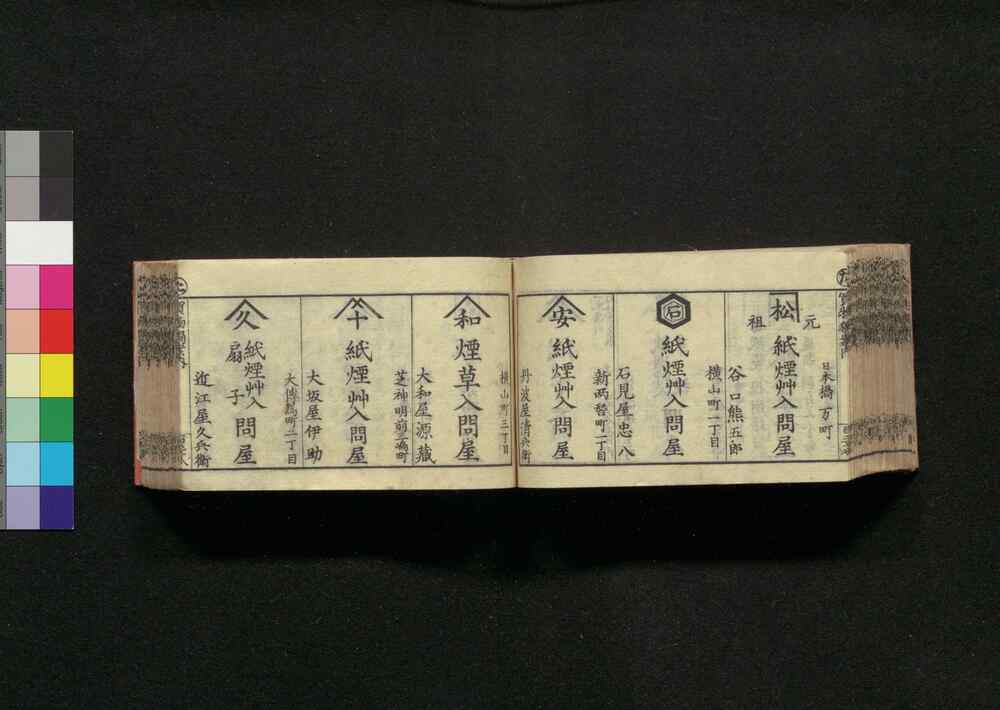 日本橋万町
松
元祖
紙煙艸入問屋
谷口熊五郎
横山町二丁目
石
紙煙艸入問屋
石見屋忠八
新両替町二丁目
安
紙煙艸入問屋
丹波屋清兵衛
横山町三丁目
和
煙草入問屋
大和屋源蔵
芝神明前三嶋町
十
紙煙艸入問屋
大坂屋伊助
大傳馬町二丁目
久
紙煙艸入
扇子
問屋
近江屋久兵衛